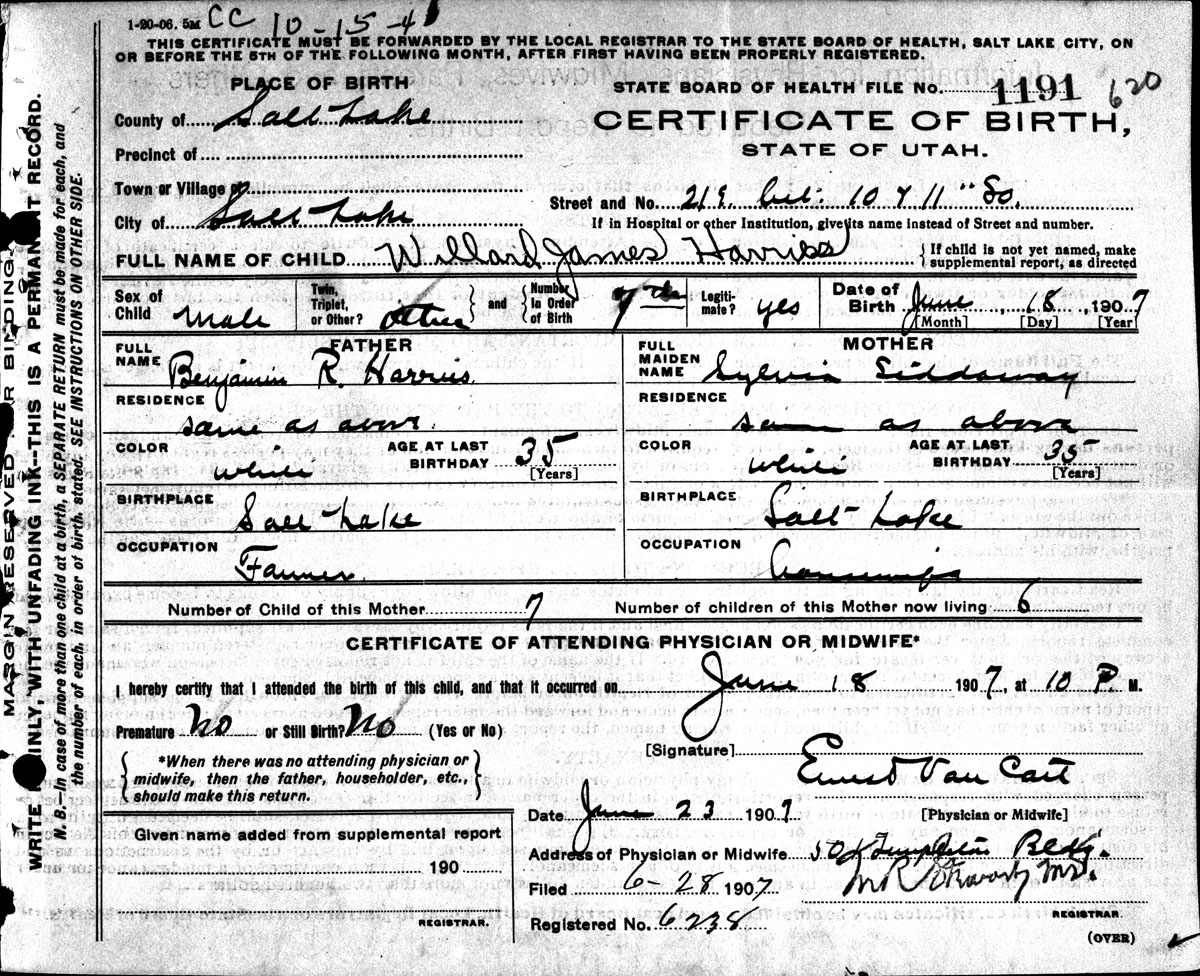 1-20-06. 5M CC 10-15-4
THIS CERTIFICATE MUST BE FORWARDED BY THE LOCAL REGISTRAR TO THE STATE BOARD OF HEALTH, SALT LAKE CITY, ON
OR BEFORE THE 5TH OF THE FOLLOWING MONTH, AFTER FIRST HAVING BEEN PROPERLY REGISTERED.
PLACE OF BIRTH
STATE BOARD OF HEALTH FILE No. 1191 620
County of Salt Lake
CERTIFICATE OF BIRTH,
STATE OF UTAH.
Precinct of
Town or Village of
Street and No. 219. bet: 10 & 11" So.
City of Salt Lake
If in Hospital or other Institution, give its name instead of Street and number.
FULL NAME OF CHILD Willard James Harriss
{ If child is not yet named, make
supplemental report, as directed
Sex of Child Male
Twin, Triplet, or Other? other } and { Number in Order of Birth 7th
Legitimate? yes
Date of Birth June 18, 1907
[Month] [Day] [Year]
FATHER
FULL NAME Benjamin R. Harris
RESIDENCE same as above.
COLOR white AGE AT LAST BIRTHDAY 35
[Years]
BIRTHPLACE Salt Lake
OCCUPATION Farmer.
MOTHER
FULL MAIDEN NAME Sylvia Siddoway
RESIDENCE same as above
COLOR white AGE AT LAST BIRTHDAY 35
[Years]
BIRTHPLACE Salt Lake
OCCUPATION housewife
Number of Child of this Mother 7 Number of children of this Mother now living 6
CERTIFICATE OF ATTENDING PHYSICIAN OR MIDWIFE*
I hereby certify that I attended the birth of this child, and that it occurred on June 18 1907, at 10 P. M.
Premature No or Still Birth? No (Yes or No)
{ *When there was no attending physician or
midwife, then the father, householder, etc.,
should make this return. }
[Signature] Ernest Van Cott
Date June 23 1907
[Physician or Midwife]
Given name added from supplemental report
190
REGISTRAR.
Address of Physician or Midwife 501 Templeton Bldg.
Filed 6-28 1907. M.D.
REGISTRAR
Registered No. 6238
(OVER)
MARGIN RESERVED FOR BINDING
WRITE PLAINLY, WITH UNFADING INK—THIS IS A PERMANENT RECORD.
N. B.—In case of more than one child at a birth, a SEPARATE RETURN must be made for each, and
the number of each, in order of birth, stated. SEE INSTRUCTIONS ON OTHER SIDE.